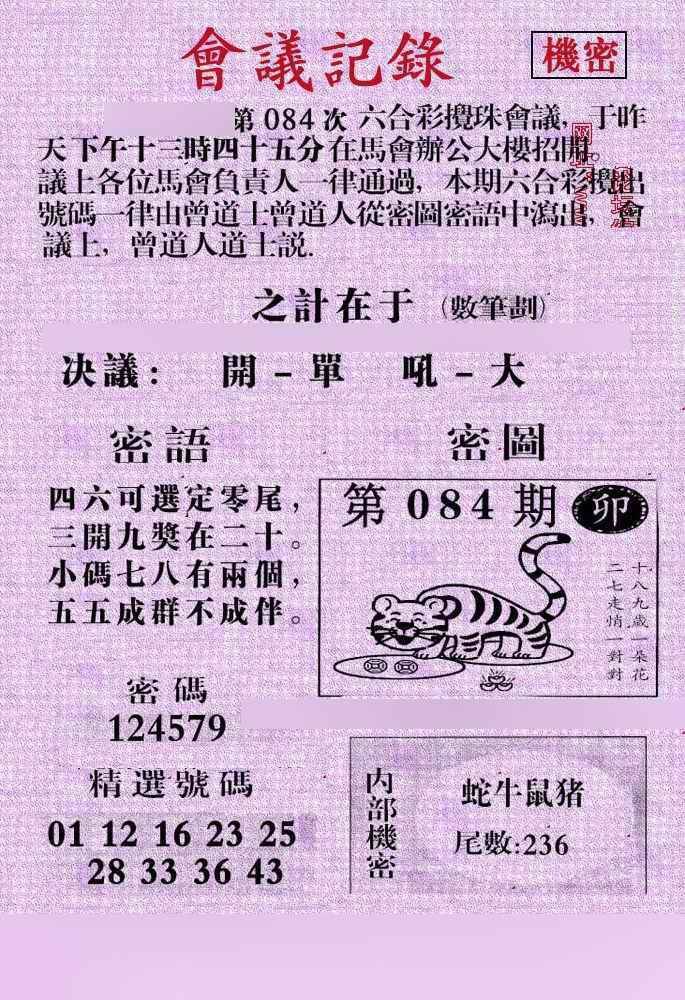 會議記錄
機密
第 084 次 六合彩攪珠會議，于昨
天下午十三時四十五分在馬會辦公大樓招開。
議上各位馬會負責人一律通過，本期六合彩攪出
號碼一律由曾道士曾道人從密圖密語中瀉出，會
議上，曾道人道士説.
之計在于（數筆劃）
决議： 開－單 吼－大
密語
四六可選定零尾，
三開九獎在二十。
小碼七八有兩個，
五五成群不成伴。
密圖
第 084 期 卯
十八九歲一朵花
二七走悄一對對
密碼
124579
精選號碼
01 12 16 23 25
28 33 36 43
内部機密
蛇牛鼠猪
尾數:236